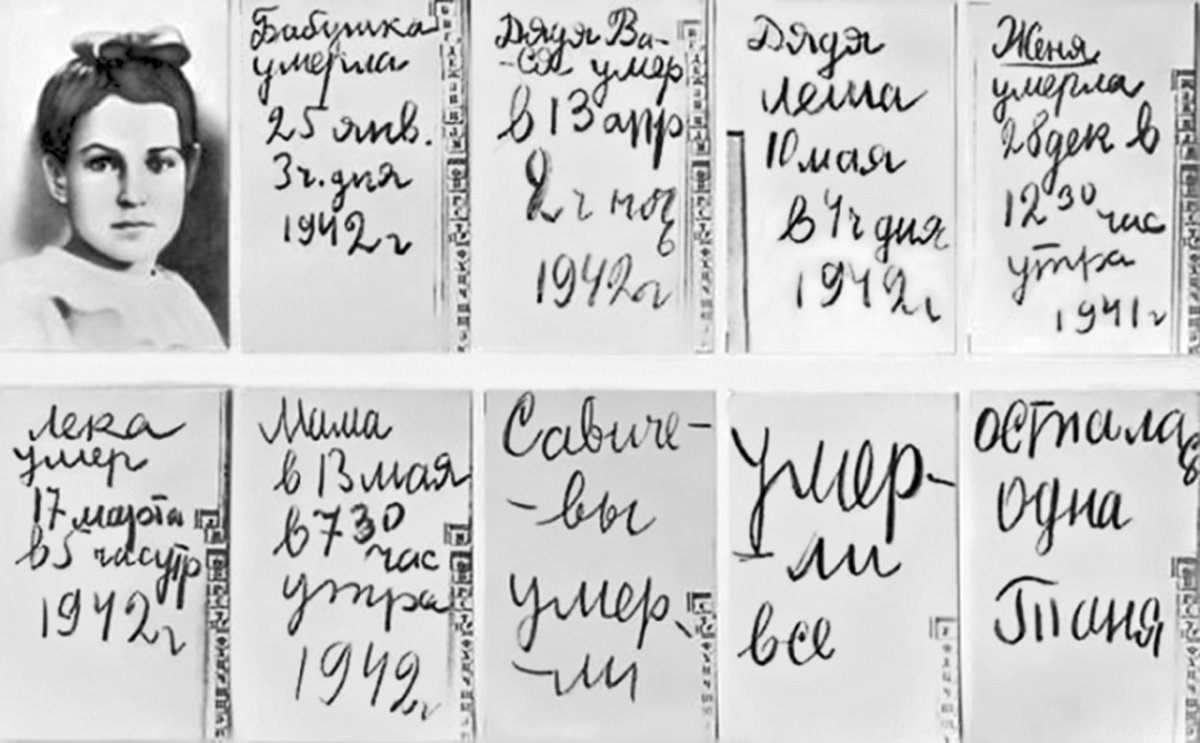 Бабушка
умерла
25 янв.
3ч. дня
1942 г
Дядя Ва-
-ся умер
в 13 апр
2 ч ночь
1942 г
Дядя
Леша
10 мая
в 4ч дня
1942 г
Женя
умерла
28 дек в
12 30 час
утра
1941 г
Лека
умер
17 марта
в 5 час утр
1942 г
Мама
в 13 мая
в 7 30
час
утра
1942 г
Савиче-
-вы
умер
-ли
Умер-
-ли
все
Осталась
одна
Таня